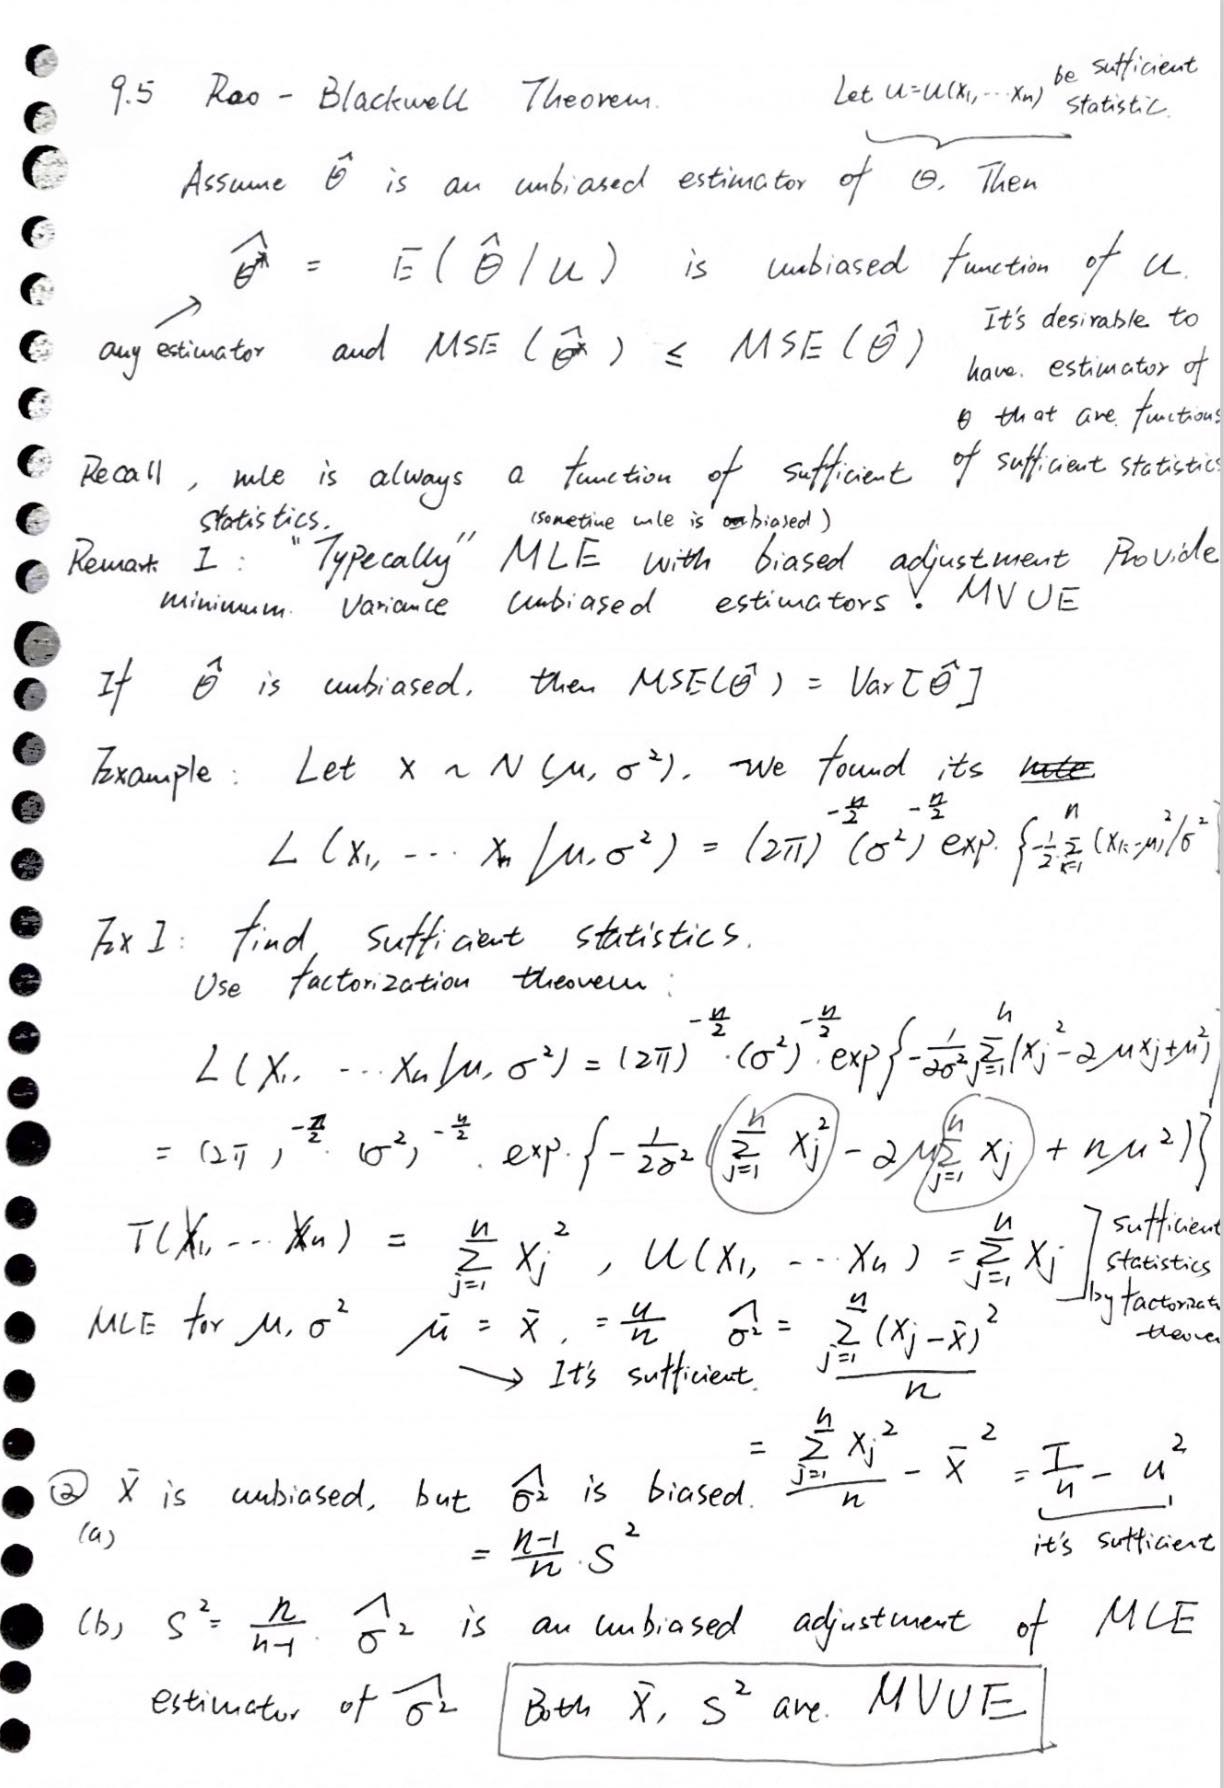 9.5 Rao - Blackwell Theorem.
Let u=u(x₁, ... xₙ) be sufficient statistic.
Assume θ̂ is an unbiased estimator of θ. Then
θ̂* = E(θ̂ / u) is unbiased function of u.
any estimator and MSE (θ̂*) ≤ MSE (θ̂)
It's desirable to
have. estimator of
θ that are functions
of sufficient statistics
Recall, mle is always a function of sufficient
statistics. (sometime mle is biased)
Remark I : "Typecally" MLE with biased adjustment Provide
minimum. Variance unbiased estimators : MVUE
If θ̂ is unbiased. then MSE(θ̂) = Var[θ̂]
Example : Let x ~ N(μ, σ²). We found its
L(x₁, --- xₙ /μ, σ²) = (2π)^{-n/2} (σ²)^{-n/2} exp. {-1/2 Σ_{k=1}^{n} (xₖ-μ)²/σ²}
Ex I : find sufficient statistics.
Use factorization theorem :
L(x₁, --- xₙ/μ, σ²) = (2π)^{-n/2} · (σ²)^{-n/2} · exp{-1/2σ² Σ_{j=1}^{n} (xⱼ² - 2μxⱼ + μ²)}
= (2π)^{-n/2} · (σ²)^{-n/2} · exp. {-1/2σ² (Σ_{j=1}^{n} xⱼ² - 2μ Σ_{j=1}^{n} xⱼ + nμ²)}
T(X₁, --- Xₙ) = Σ_{j=1}^{n} xⱼ² , U(x₁, --- xₙ) = Σ_{j=1}^{n} xⱼ
sufficient
statistics
by factorizat
theorem
MLE for μ, σ² μ̄ = x̄, = u/n σ̂² = Σ_{j=1}^{n} (xⱼ - x̄)² / n
→ It's sufficient.
= Σ_{j=1}^{n} xⱼ² / n - x̄² = T/n - u²
it's sufficient
② x̄ is unbiased, but σ̂² is biased.
(a) = (n-1)/n · S²
(b) S² = n/(n-1) · σ̂² is an unbiased adjustment of MLE
estimator of σ̂² Both x̄, S² are. MVUE